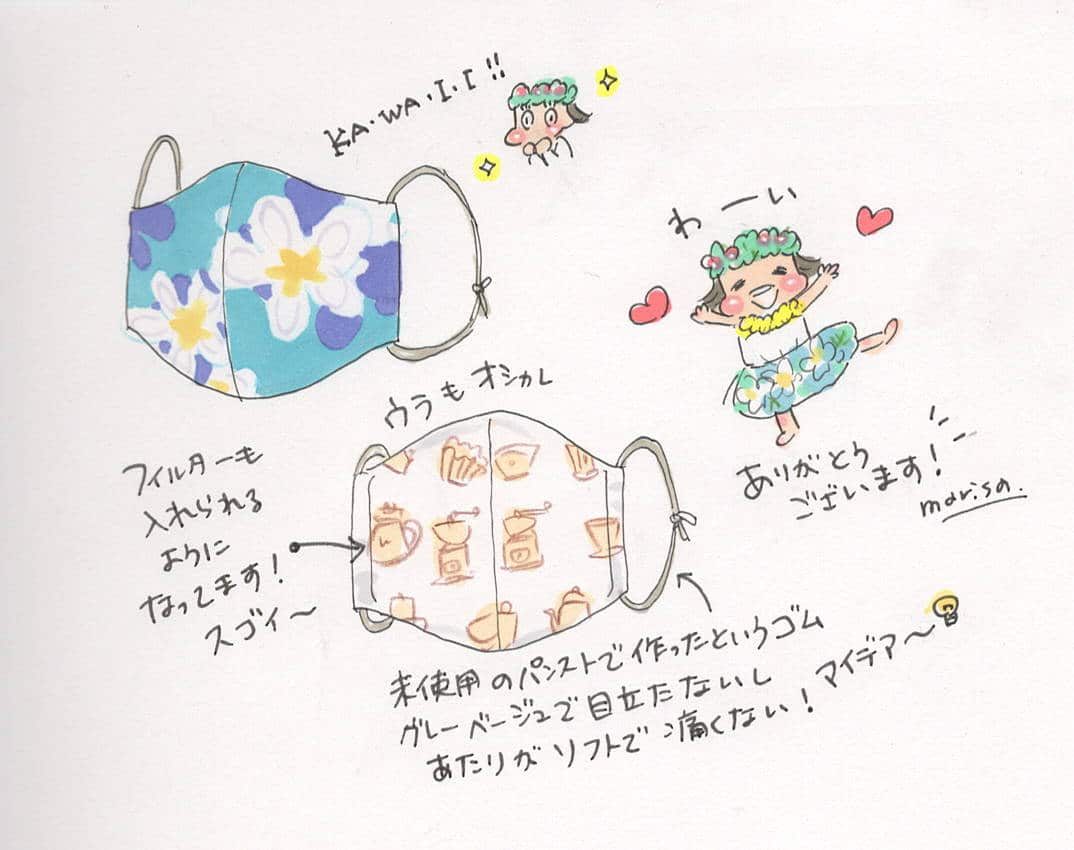 KA・WA・I・I!!
わーい
ウラもオシャレ
フィルターも
入れられる
ように
なってます!
スゴイ〜
ありがとう
ございます!
marisa.
未使用のパンストで作ったというゴム
グレーベージュで目立たないし
あたりがソフトで痛くない!マイデア〜